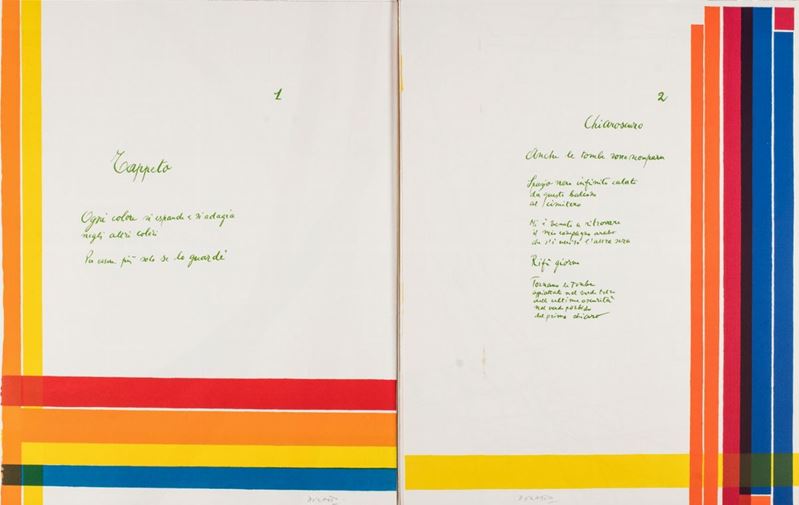 1
Tappeto
Ogni colore si espande e si adagia
negli altri colori
Per essere più solo se lo guardi
2
Chiaroscuro
Anche le tombe sono scomparse
Spazio nero infinito calato
da questo balcone
al cimitero
Mi è venuto a ritrovare
il mio compagno arabo
che s'è ucciso l'altra sera
Rifà giorno
Tornano le tombe
appiattate nel verde tetro
delle ultime oscurità
nel verde torbido
del primo chiaro
Dorazio
Dorazio